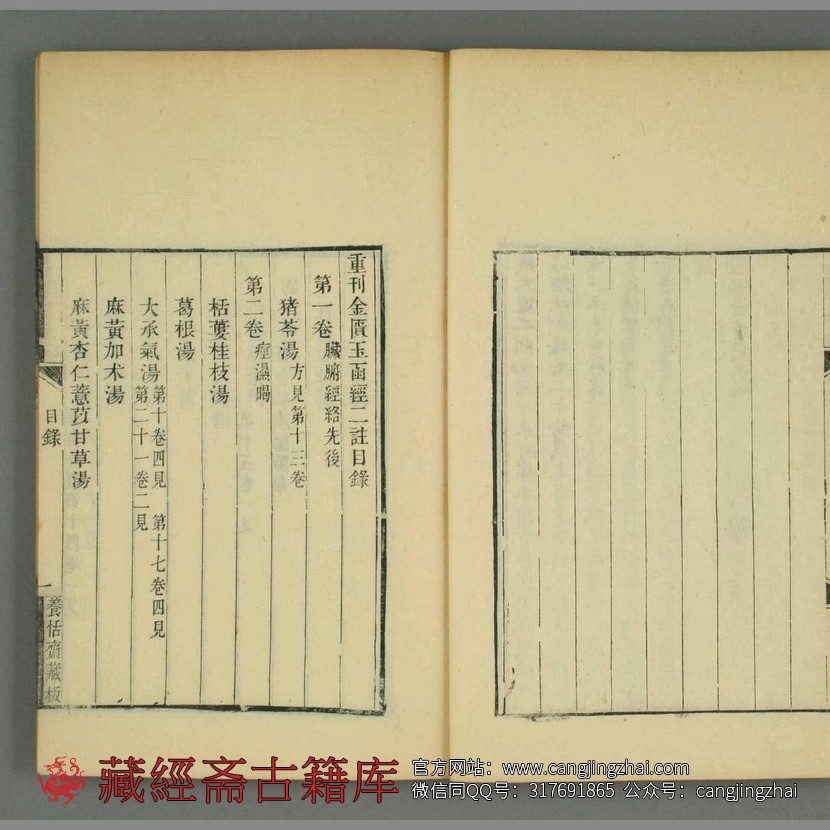 重刊金匱玉函經二註目錄
第一卷 臟腑經絡先後
猪苓湯 方見第十三卷
第二卷 痙濕暍
栝蔞桂枝湯
葛根湯
大承氣湯 第十卷四見 第十七卷四見 第二十一卷二見
麻黃加朮湯
麻黃杏仁薏苡甘草湯
目錄
一
養恬齋藏板
藏經斋古籍库
官方网站：www.cangjingzhai.com
微信同QQ号：317691865 公众号：cangjingzhai